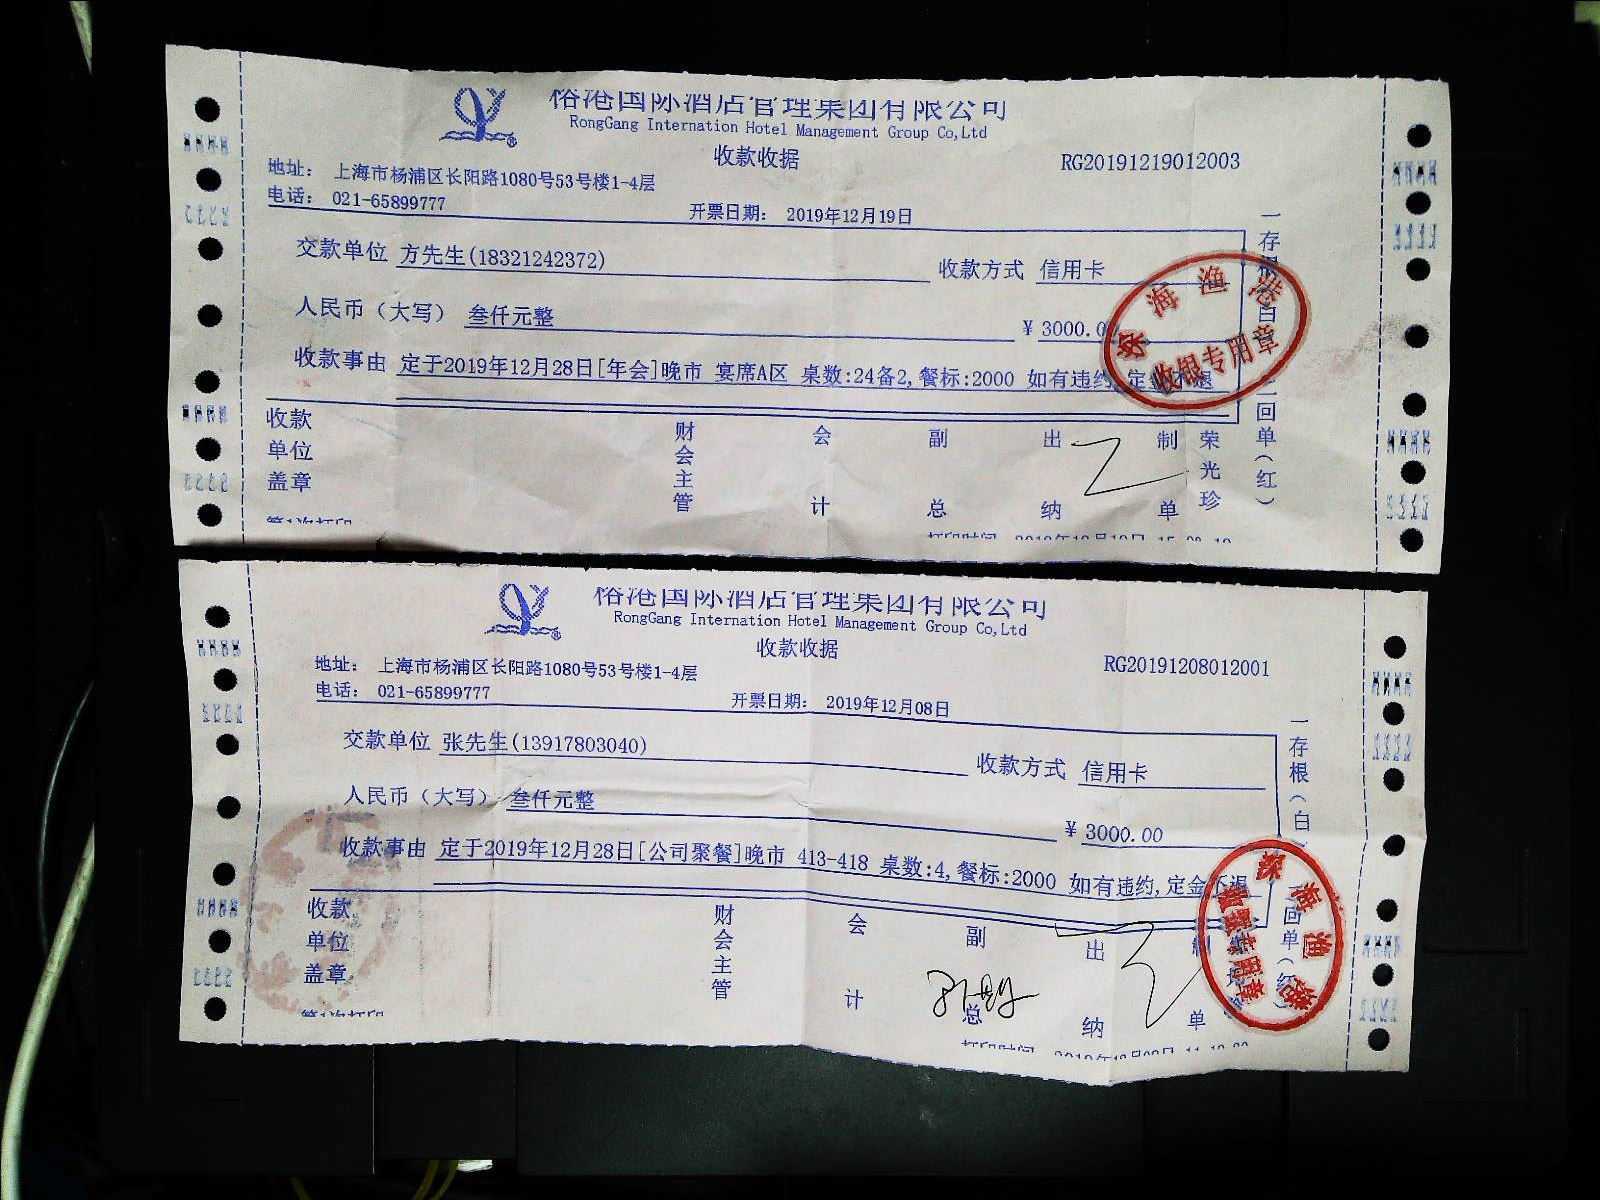 俗港国际酒店管理集团有限公司
RongGang Internation Hotel Management Group Co,Ltd
收款收据
RG20191219012003
地址： 上海市杨浦区长阳路1080号53号楼1-4层
电话： 021-65899777
开票日期： 2019年12月19日
交款单位 方先生(18321242372)
收款方式 信用卡
人民币（大写） 叁仟元整
¥ 3000.0
收款事由 定于2019年12月28日[年会]晚市 宴席A区 桌数:24备2,餐标:2000 如有违约,定金不退
一存根（白）
二回单（红）
深海渔港
收银专用章
收款单位盖章
财会主管
会计
副总
出纳
制单
荣光珍
第1次打印
打印时间
俗港国际酒店管理集团有限公司
RongGang Internation Hotel Management Group Co,Ltd
收款收据
RG20191208012001
地址： 上海市杨浦区长阳路1080号53号楼1-4层
电话： 021-65899777
开票日期： 2019年12月08日
交款单位 张先生(13917803040)
收款方式 信用卡
人民币（大写） 叁仟元整
¥ 3000.00
收款事由 定于2019年12月28日[公司聚餐]晚市 413-418 桌数:4,餐标:2000 如有违约,定金不退
一存根（白）
回单（红）
深海渔港
收银专用章
收款单位盖章
财会主管
会计
副总
出纳
制单
第1次打印
打印时间